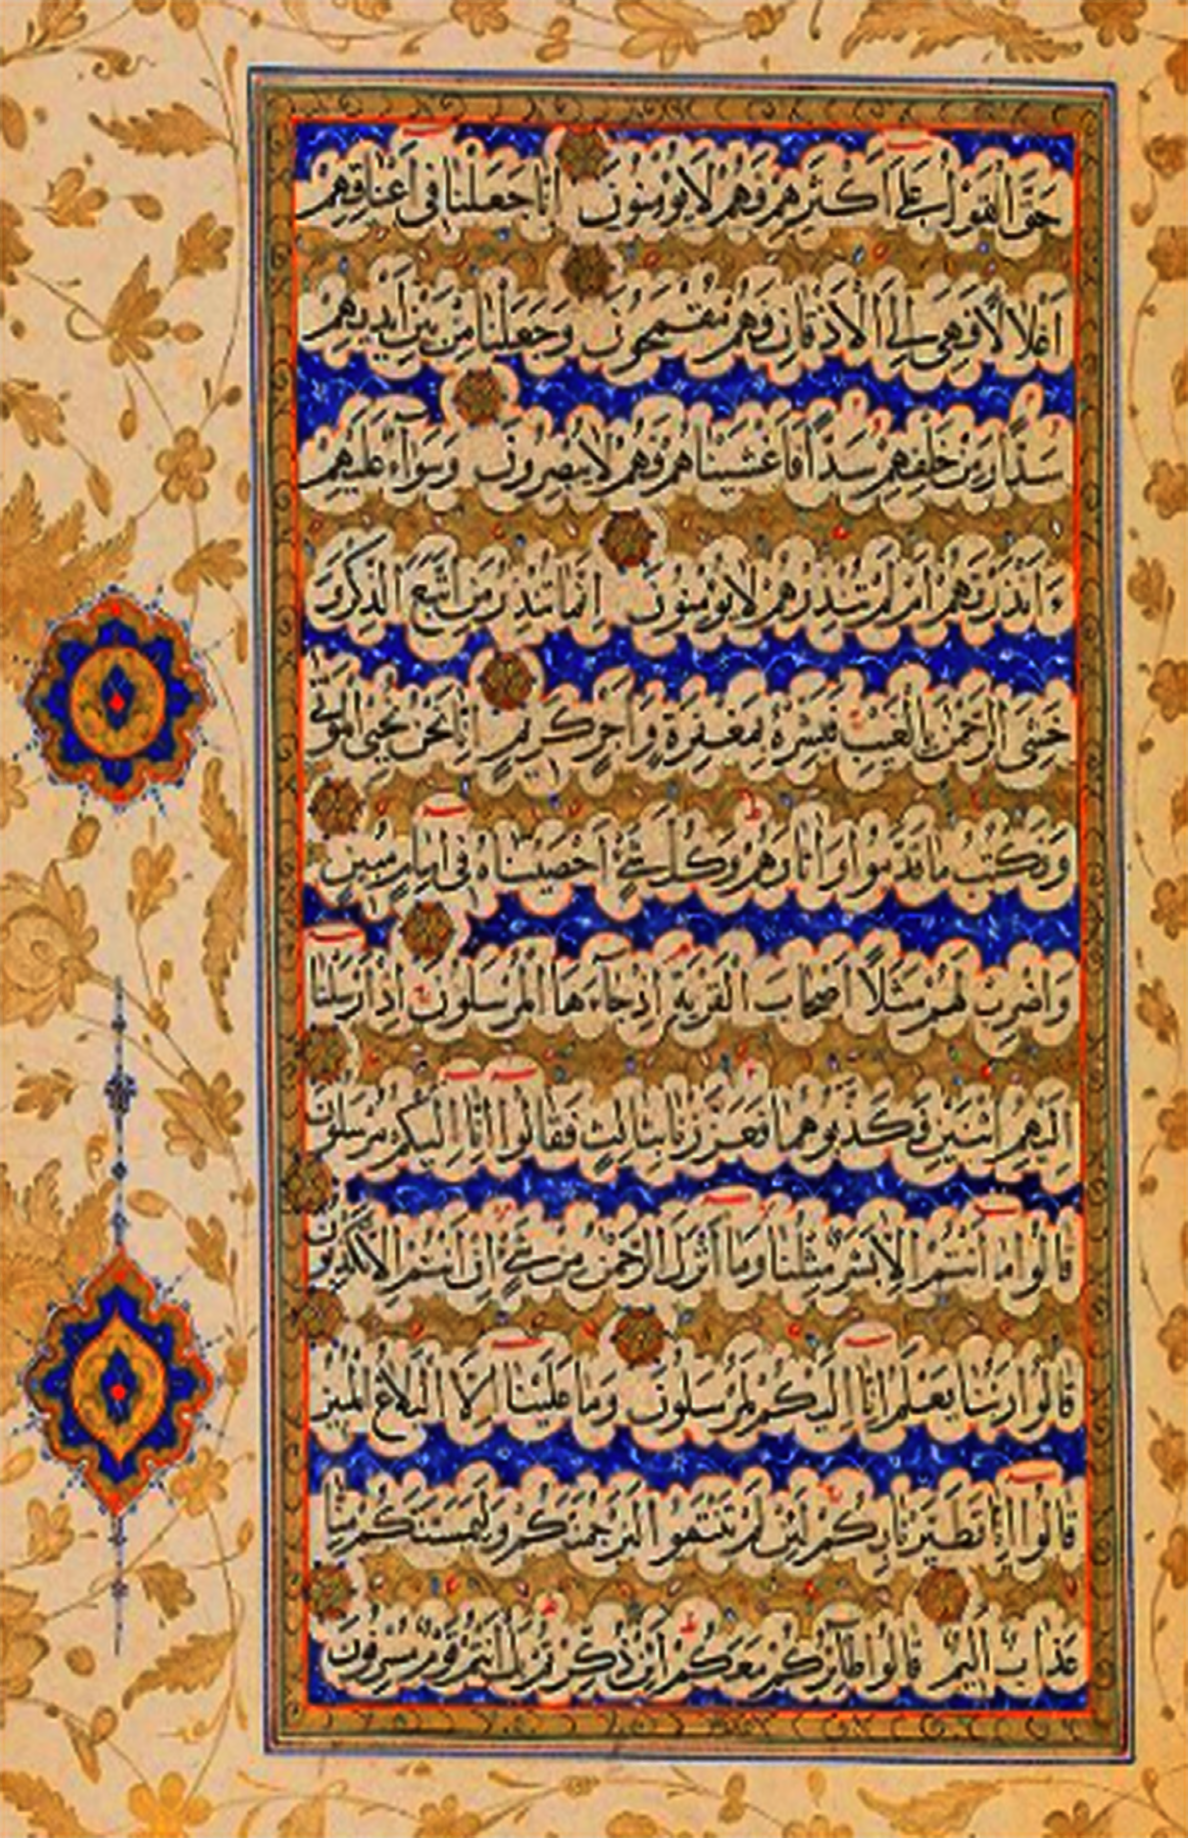 حَقَّ الْقَوْلُ عَلَى أَكْثَرِهِمْ فَهُمْ لَا يُؤْمِنُونَ إِنَّا جَعَلْنَا فِي أَعْنَاقِهِمْ
أَغْلَالًا فَهِيَ إِلَى الْأَذْقَانِ فَهُمْ مُقْمَحُونَ وَجَعَلْنَا مِنْ بَيْنِ أَيْدِيهِمْ
سَدًّا وَمِنْ خَلْفِهِمْ سَدًّا فَأَغْشَيْنَاهُمْ فَهُمْ لَا يُبْصِرُونَ وَسَوَاءٌ عَلَيْهِمْ
ءَأَنْذَرْتَهُمْ أَمْ لَمْ تُنْذِرْهُمْ لَا يُؤْمِنُونَ إِنَّمَا تُنْذِرُ مَنِ اتَّبَعَ الذِّكْرَ وَ
خَشِيَ الرَّحْمٰنَ بِالْغَيْبِ فَبَشِّرْهُ بِمَغْفِرَةٍ وَأَجْرٍ كَرِيمٍ إِنَّا نَحْنُ نُحْيِي الْمَوْتَى
وَنَكْتُبُ مَا قَدَّمُوا وَآثَارَهُمْ وَكُلَّ شَيْءٍ أَحْصَيْنَاهُ فِي إِمَامٍ مُبِينٍ
وَاضْرِبْ لَهُمْ مَثَلًا أَصْحَابَ الْقَرْيَةِ إِذْ جَاءَهَا الْمُرْسَلُونَ إِذْ أَرْسَلْنَا
إِلَيْهِمُ اثْنَيْنِ فَكَذَّبُوهُمَا فَعَزَّزْنَا بِثَالِثٍ فَقَالُوا إِنَّا إِلَيْكُمْ مُرْسَلُونَ
قَالُوا مَا أَنْتُمْ إِلَّا بَشَرٌ مِثْلُنَا وَمَا أَنْزَلَ الرَّحْمٰنُ مِنْ شَيْءٍ إِنْ أَنْتُمْ إِلَّا تَكْذِبُونَ
قَالُوا رَبُّنَا يَعْلَمُ إِنَّا إِلَيْكُمْ لَمُرْسَلُونَ وَمَا عَلَيْنَا إِلَّا الْبَلَاغُ الْمُبِينُ
قَالُوا إِنَّا تَطَيَّرْنَا بِكُمْ لَئِنْ لَمْ تَنْتَهُوا لَنَرْجُمَنَّكُمْ وَلَيَمَسَّنَّكُمْ مِنَّا
عَذَابٌ أَلِيمٌ قَالُوا طَائِرُكُمْ مَعَكُمْ أَئِنْ ذُكِّرْتُمْ بَلْ أَنْتُمْ قَوْمٌ مُسْرِفُونَ